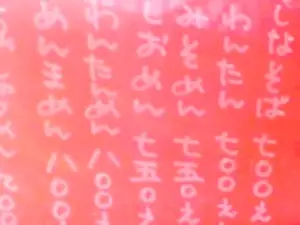 しなそば 七〇〇え
わんたん 七〇〇え
みそめん 七五〇え
しおめん 七五〇え
わんたんめん 八〇〇え
めんまめん 八〇〇